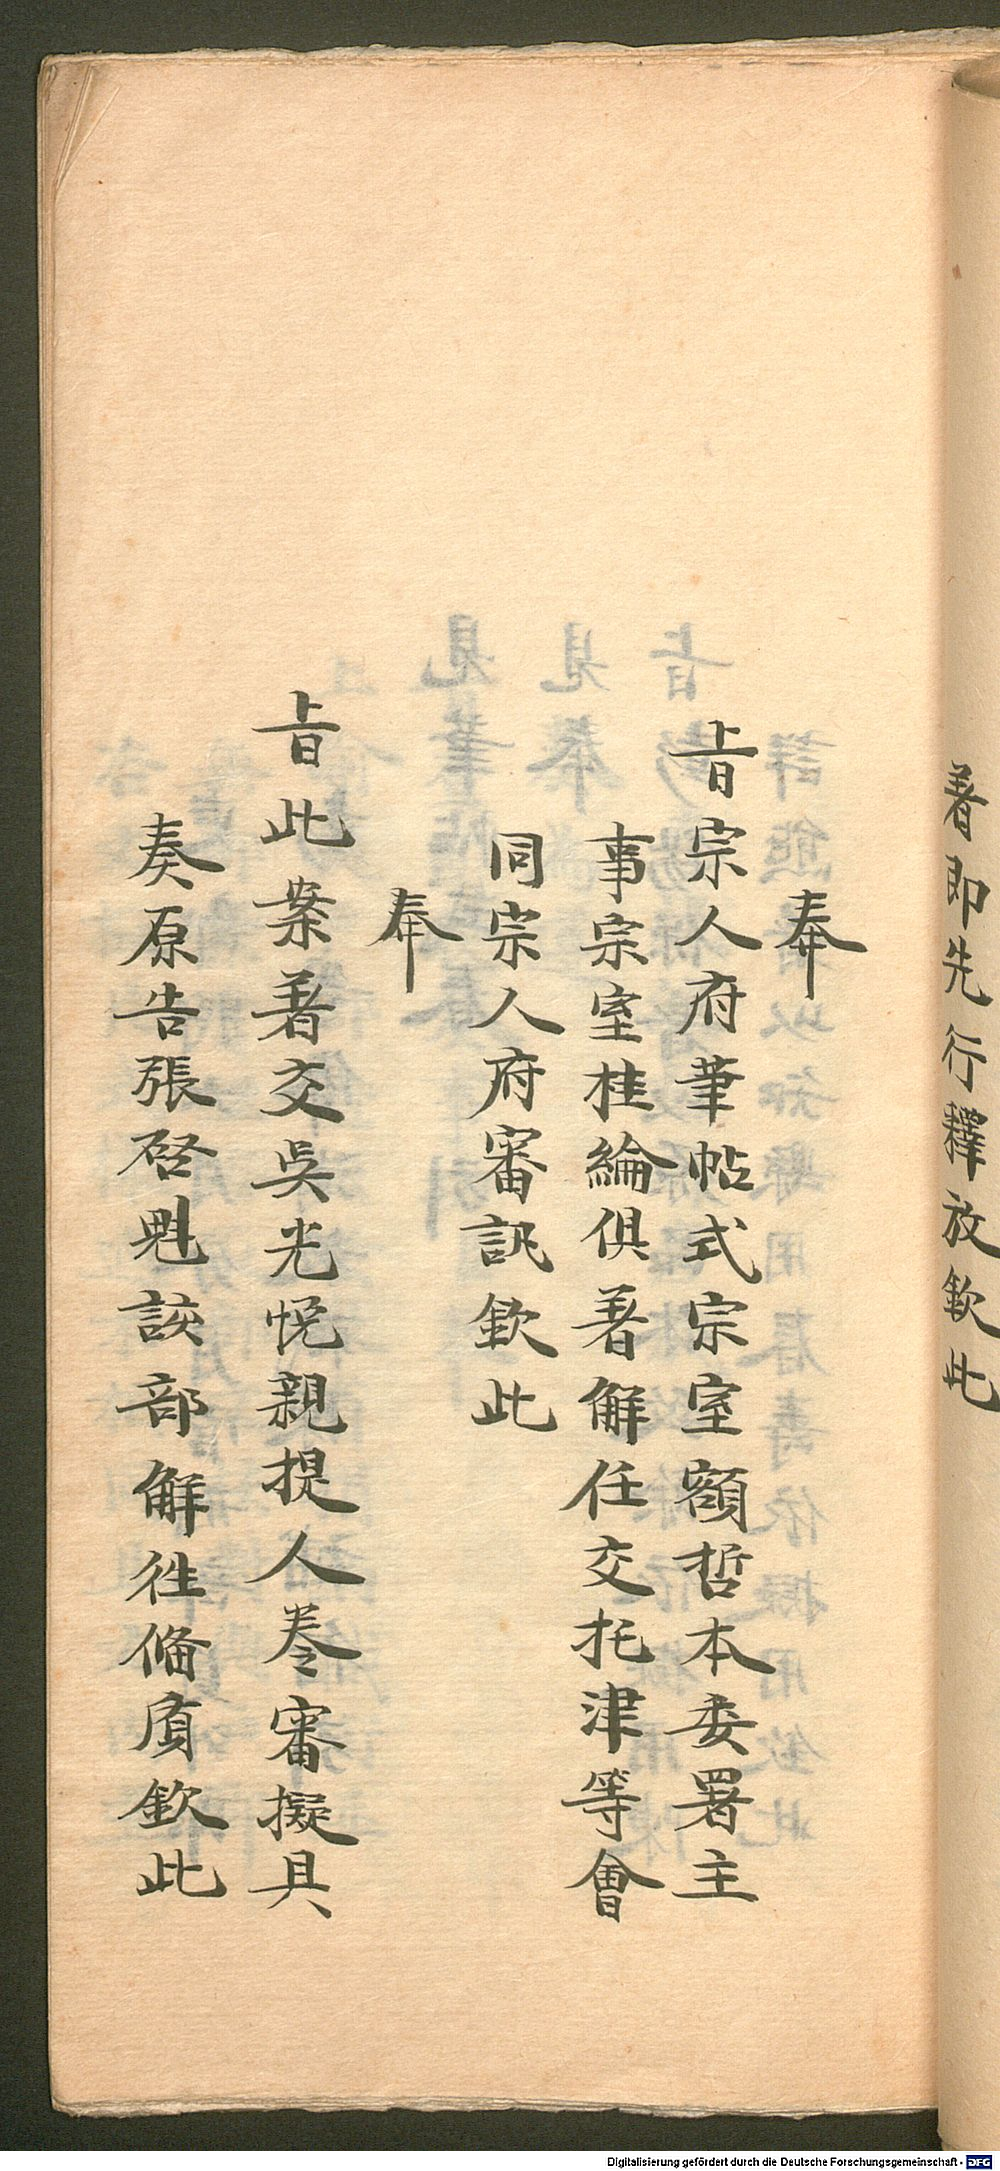 著即先行釋放欽此
奉
旨宗人府筆帖式宗室額哲本委署主
事宗室桂綸俱著解任交托津等會
同宗人府審訊欽此
奉
旨此案著交吳光悅親提人卷審擬具
奏原告張啓魁該部解徃俻質欽此
Digitalisierung gefördert durch die Deutsche Forschungsgemeinschaft - DFG